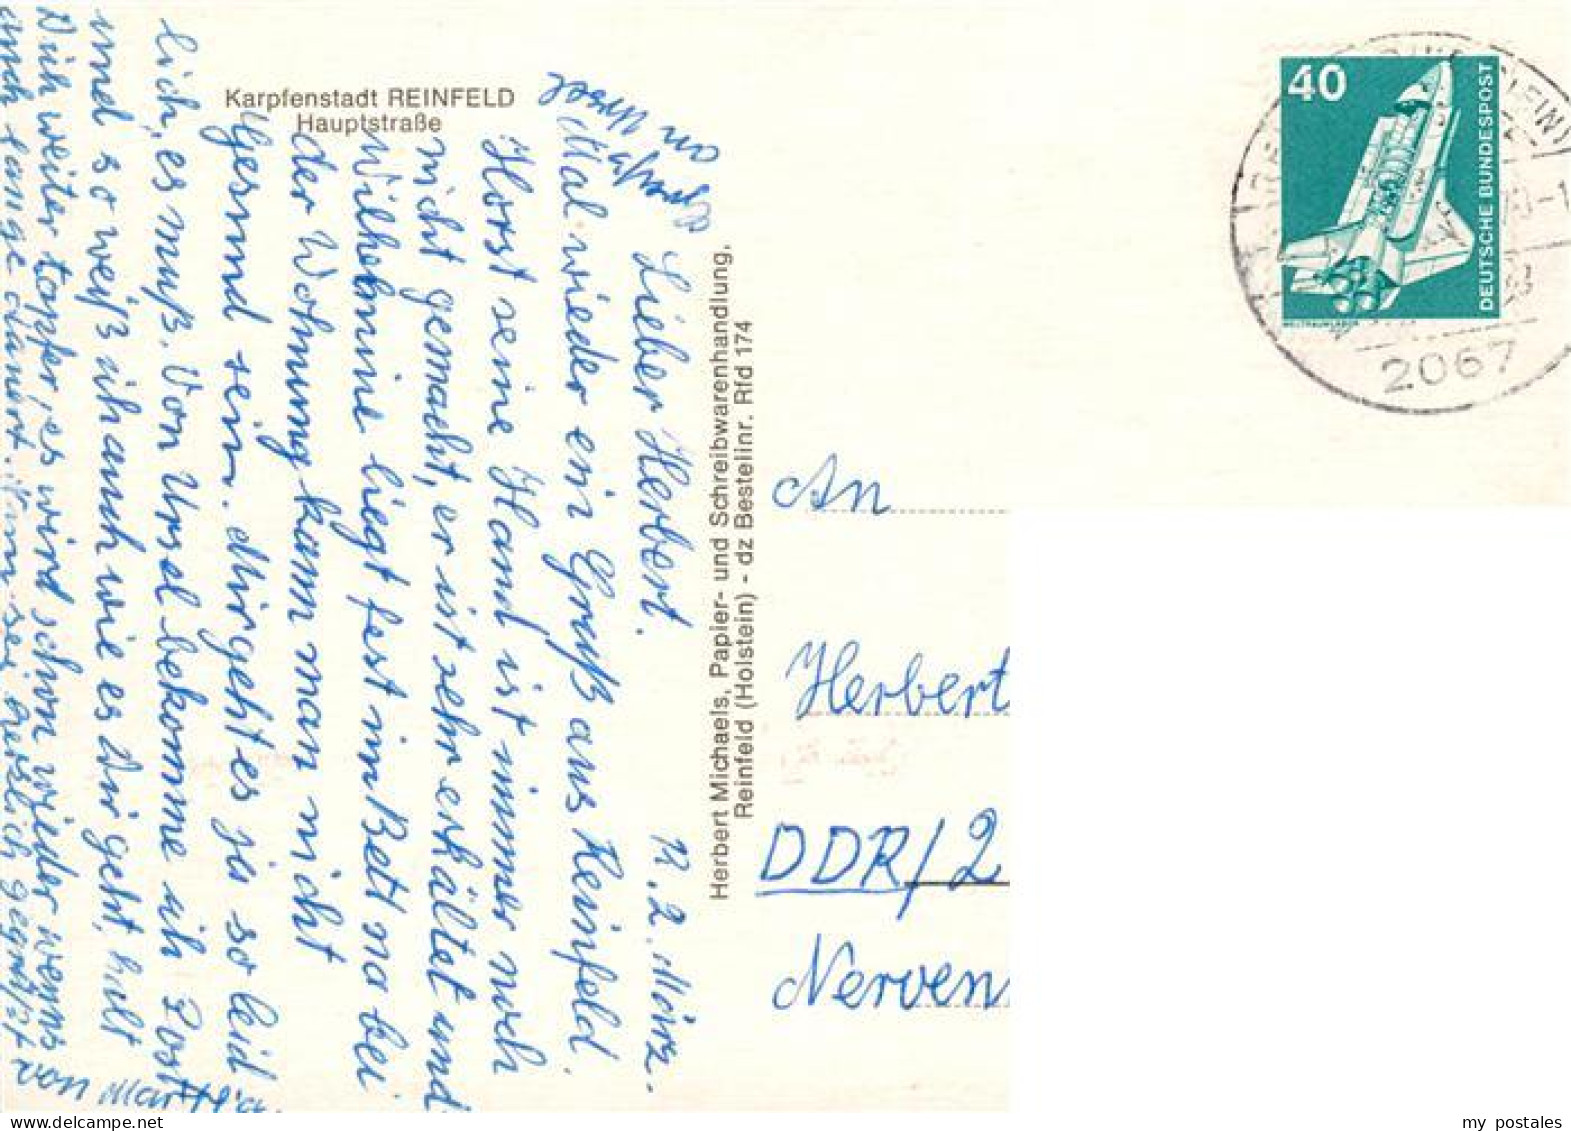 Karpfenstadt REINFELD
Hauptstraße
Herbert Michaels, Papier- und Schreibwarenhandlung,
Reinfeld (Holstein) - dz Bestellnr. Rfd 174
40
DEUTSCHE BUNDESPOST
WELTRAUMLABOR
2067
R. 2. März.
Lieber Herbert.
Mal wieder ein Gruß aus Reinfeld.
Horst seine Hand ist immer noch
nicht gemacht, er ist sehr erkältet und
Wilhelmine liegt fest im Bett na bei
der Wohnung kann man nicht
Gesund sein. Mir geht es ja so leid
lich, es muß. Von Ursel bekomme ich Post
und so weiß ich auch wie es Dir geht, halt
Dich weiter tapfer, es wird schon wieder wenns
auch lange dauert. Nun sei herzlich gegrüßt
von Martha
An
Herbert
DDR/2
Nerven
my postales